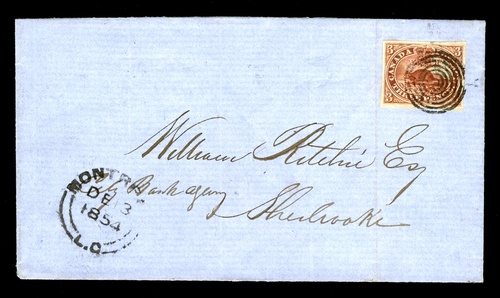 3 CANADA 3
William Ritchie Esq
Bank agency
Sherbrooke
MONTREAL
DE 13
1854
L.C